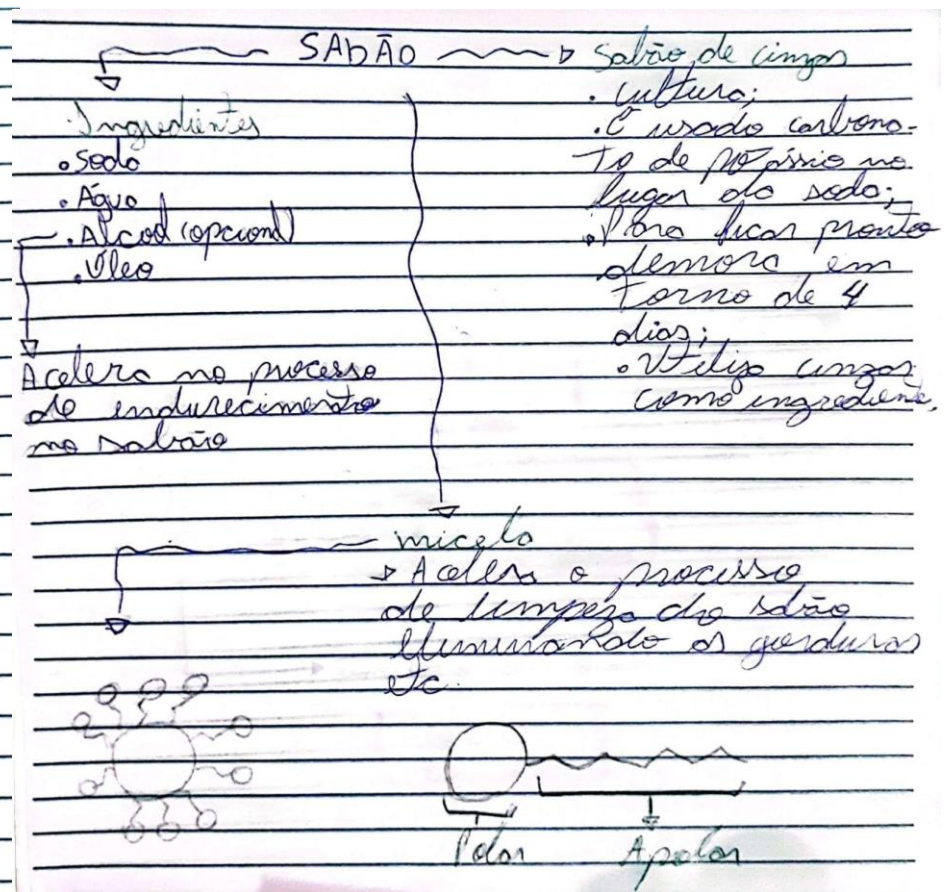 SABÃO
Ingredientes
• Soda
• Água
• Álcool (opcional)
• Óleo
Acelera no processo
de endurecimento
no sabão
Sabão de cinzas
• Cultura;
• É usado carbona-
to de potássio no
lugar da soda;
• Para ficar pronto
demora em
torno de 4
dias;
• Utiliza cinzas
como ingrediente.
micela
Acelera o processo
de limpeza do sabão
eliminando as gorduras
etc.
Polar
Apolar